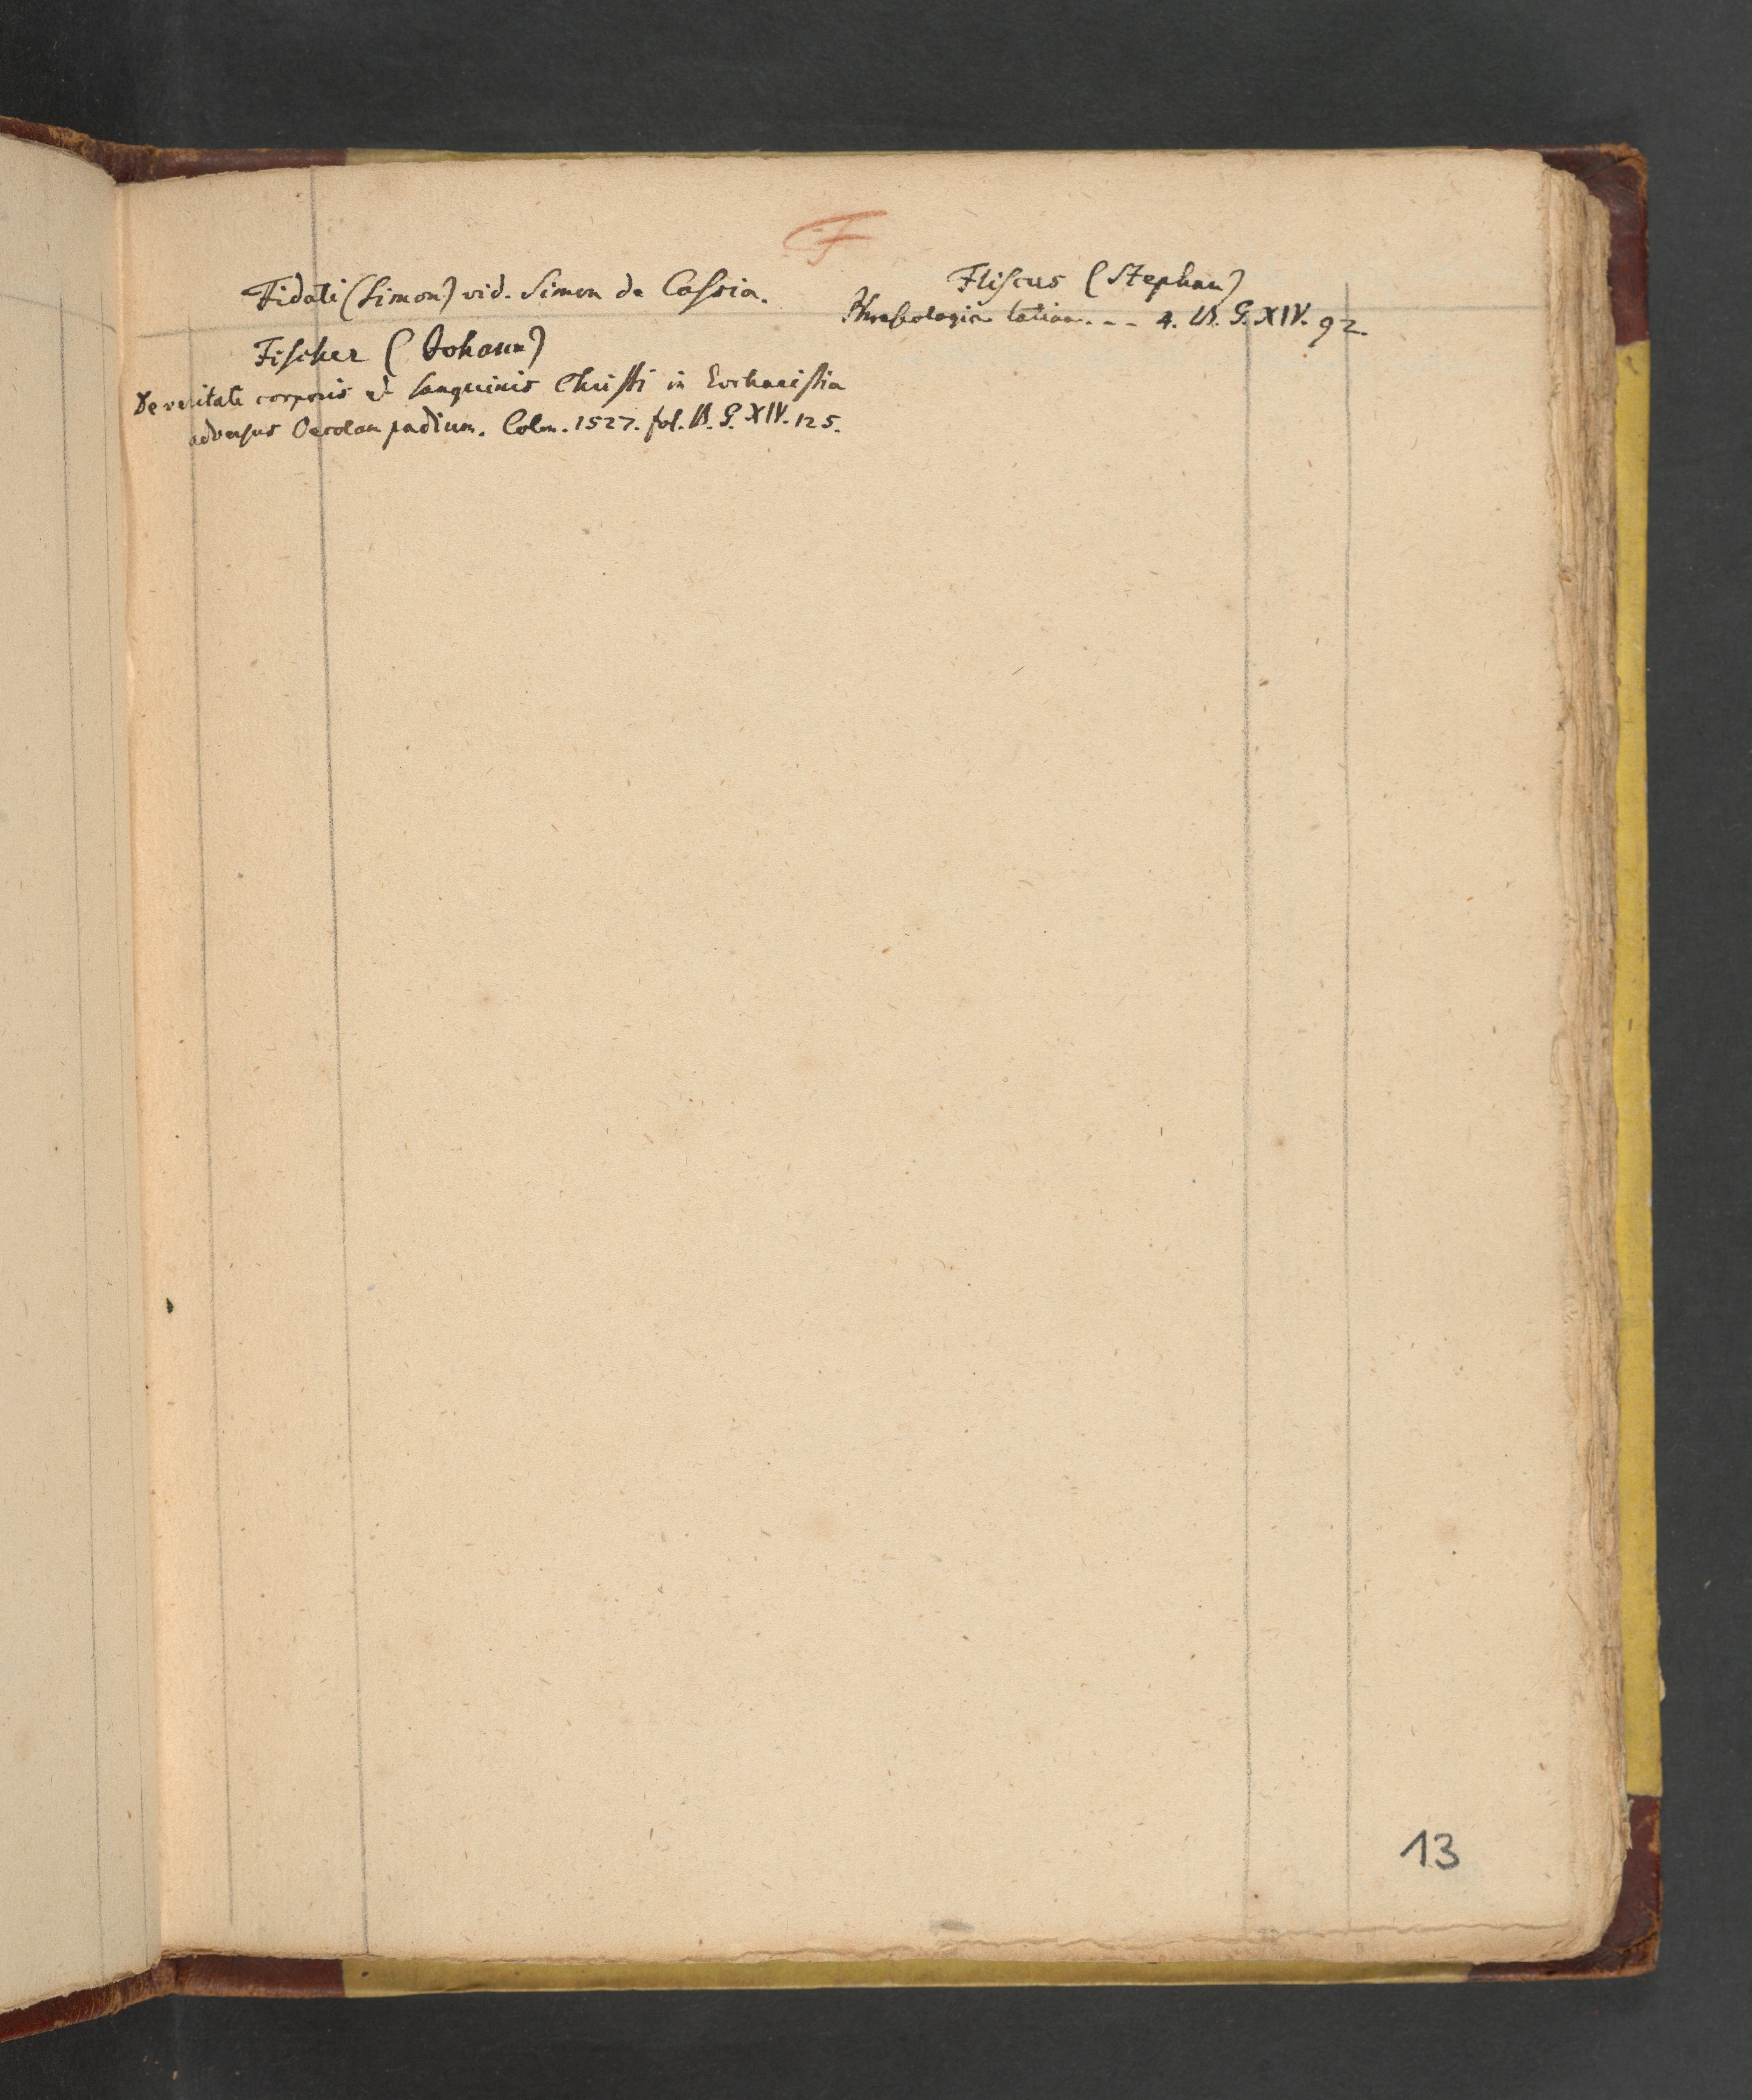 F
Fidati (Simon) vid. Simon de Cassia.
Fischer (Johann)
De veritate corporis et sanguinis Christi in Eucharistia
adversus Oecolampadium. Colon. 1527. fol. V. G. XIV. 125.
Fliscus (Stephan)
Phraseologia latina. - - - 4. V. G. XIV. 92.
13